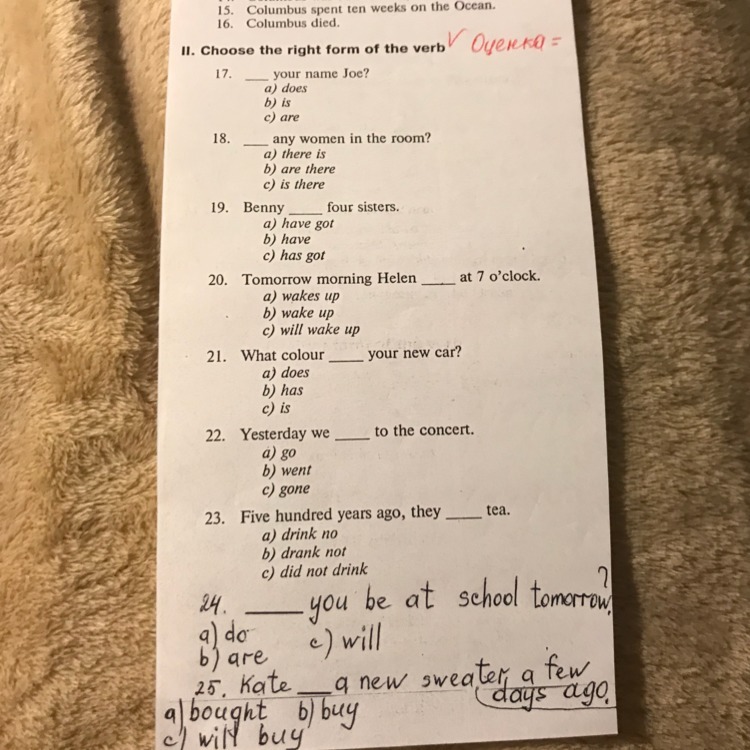 15. Columbus spent ten weeks on the Ocean.
16. Columbus died.
II. Choose the right form of the verb V Оценка =
17. ___ your name Joe?
a) does
b) is
c) are
18. ___ any women in the room?
a) there is
b) are there
c) is there
19. Benny ____ four sisters.
a) have got
b) have
c) has got
20. Tomorrow morning Helen ____ at 7 o'clock.
a) wakes up
b) wake up
c) will wake up
21. What colour ____ your new car?
a) does
b) has
c) is
22. Yesterday we ____ to the concert.
a) go
b) went
c) gone
23. Five hundred years ago, they ____ tea.
a) drink no
b) drank not
c) did not drink
24. ____ you be at school tomorrow?
a) do c) will
b) are
25. Kate ___ a new sweater a few
days ago.
a) bought b) buy
c) will buy